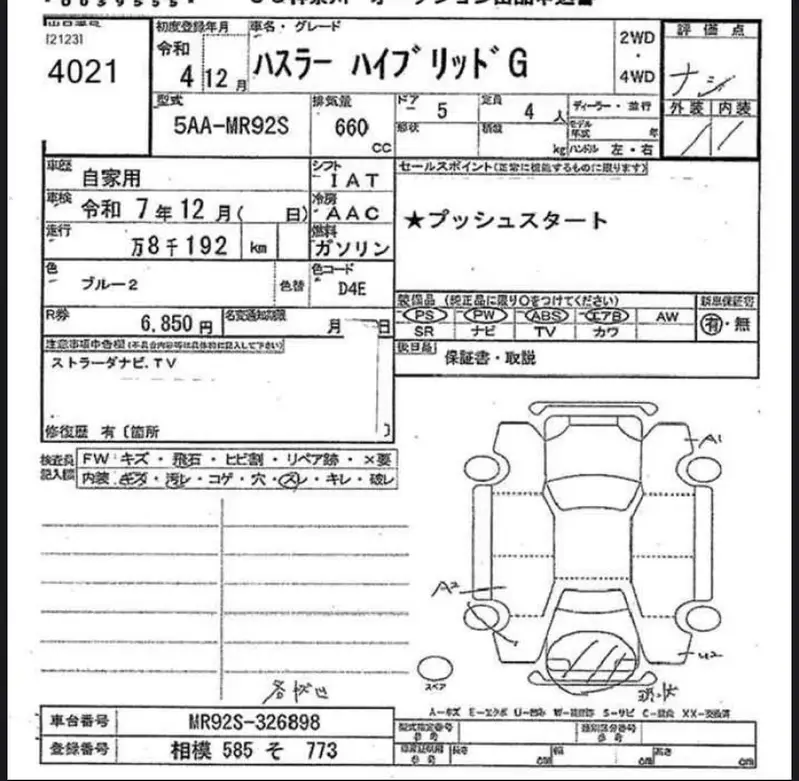 [2123]
4021
初度登録年月
令和
4 12 月
車名・グレード
ハスラー ハイブリッドG
2WD
・
4WD
評価点
ナシ
外装 内装
型式
5AA-MR92S
排気量
660
CC
ドア
5
定員
4 人
形状
積載
kg
ディーラー・並行
モデル年式 年
ハンドル 左・右
車歴
自家用
シフト
IAT
車検
令和 7年12月( 日)
冷房
AAC
走行
万8千192 km
燃料
ガソリン
セールスポイント(正常に機能するものに限ります)
★プッシュスタート
色
ブルー2
色替
色コード
D4E
R券
6,850 円
名変通知期限
月 日
装備品 (純正品に限り○をつけてください)
PS PW ABS エアB AW
SR ナビ TV カワ
新車保証書
有・無
後日品
保証書・取説
注意事項申告欄
ストラーダナビ.TV
修復歴 有〔箇所 〕
検査員
記入欄
FW キズ・飛石・ヒビ割・リペア跡・×要
内装 キズ・汚レ・コゲ・穴・スレ・キレ・破レ
A1
A2
U2
スペア
A-キズ E-エクボ U-凹み S-サビ XX-交換済
車台番号
MR92S-326898
登録番号
相模 585 そ 773
型式指定番号
参考
類別区分番号
参考
長さ cm
幅 cm
高さ cm